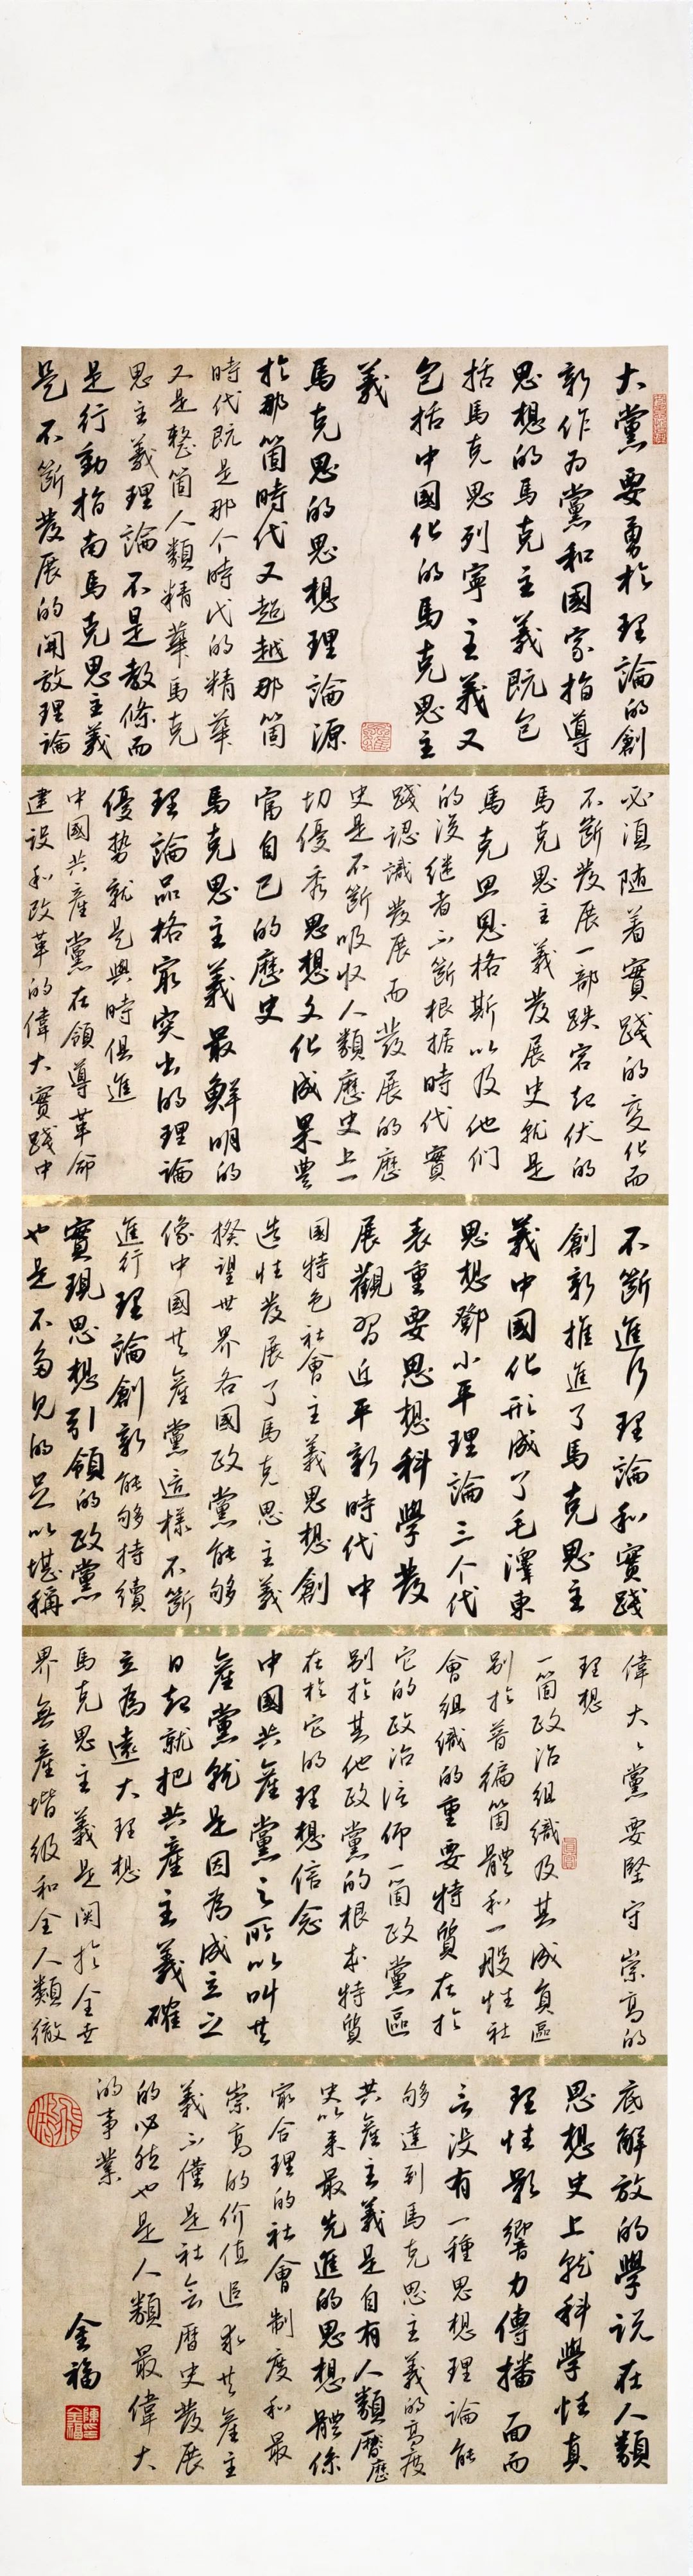 大黨要勇於理論的創
新作为黨和國家指導
思想的馬克主義既包
括馬克思列寧主義又
包括中國化的馬克思主
義
馬克思的思想理論源
於那箇時代又超越那箇
時代既是那个時代的精華
又是整箇人類精華馬克
思主義理論不是教條而
是行動指南馬克思主義
是不斷發展的開放理論
必須随着實踐的變化而
不斷發展一部跌宕起伏的
馬克思主義發展史就是
馬克思恩格斯以及他們
的後继者不斷根据時代實
踐認識發展而發展的歷
史是不斷吸收人類歷史上一
切優秀思想文化成果豐
富自己的歷史
馬克思主義最鮮明的
理論品格最突出的理論
優势就是與時俱進
中國共產黨在領導革命
建设和改革的偉大實踐中
不斷進行理論和實踐
創新推進了馬克思主
義中國化形成了毛澤東
思想鄧小平理論三个代
表重要思想科學發
展觀習近平新時代中
國特色社會主義思想創
造性發展了馬克思主義
揆望世界各國政黨能够
像中國共產黨這樣不斷
進行理論創新能够持續
實現思想引領的政黨
也是不多見的足以堪稱
偉大大黨要堅守崇高的
理想
一箇政治組織及其成員區
别於普徧箇體和一般性社
會组織的重要特質在於
它的政治信仰一箇政黨區
别於其他政黨的根本特質
在於它的理想信念
中國共產黨之所以叫共
產黨就是因為成立之
日起就把共產主義確
立為遠大理想
馬克思主義是関於全世
界無產堦级和全人類徹
底解放的學说在人類
思想史上就科學性真
理性影響力傳播面而
言没有一種思想理論能
够達到馬克思主義的高度
共產主義是自有人類曆歷
史以来最先進的思想體係
最合理的社會制度和最
崇高的价值追求共產主
義不僅是社会曆史發展
的必然也是人類最偉大
的事業
金福